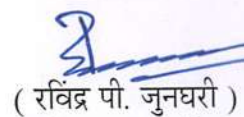 ( रविंद्र पी. जुनघरी )